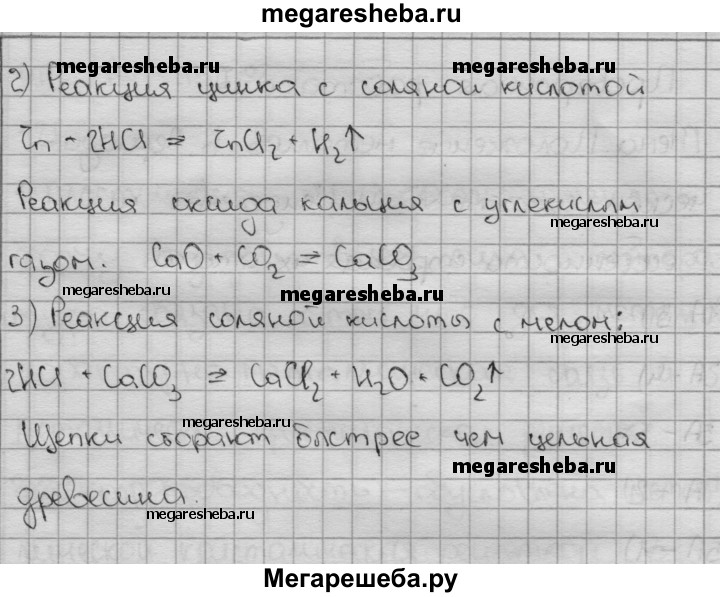 megaresheba.ru
megaresheba.ru megaresheba.ru
2) Реакция цинка с соляной кислотой
Zn + 2HCl = ZnCl₂ + H₂↑
Реакция оксида кальция с углекислым
megaresheba.ru
газом. CaO + CO₂ = CaCO₃
megaresheba.ru megaresheba.ru
3) Реакция соляной кислоты с мелом:
megaresheba.ru
2HCl + CaCO₃ = CaCl₂ + H₂O + CO₂↑
megaresheba.ru
Щепки сгорают быстрее чем цельная
megaresheba.ru
древесина.
megaresheba.ru
Мегарешеба.ру